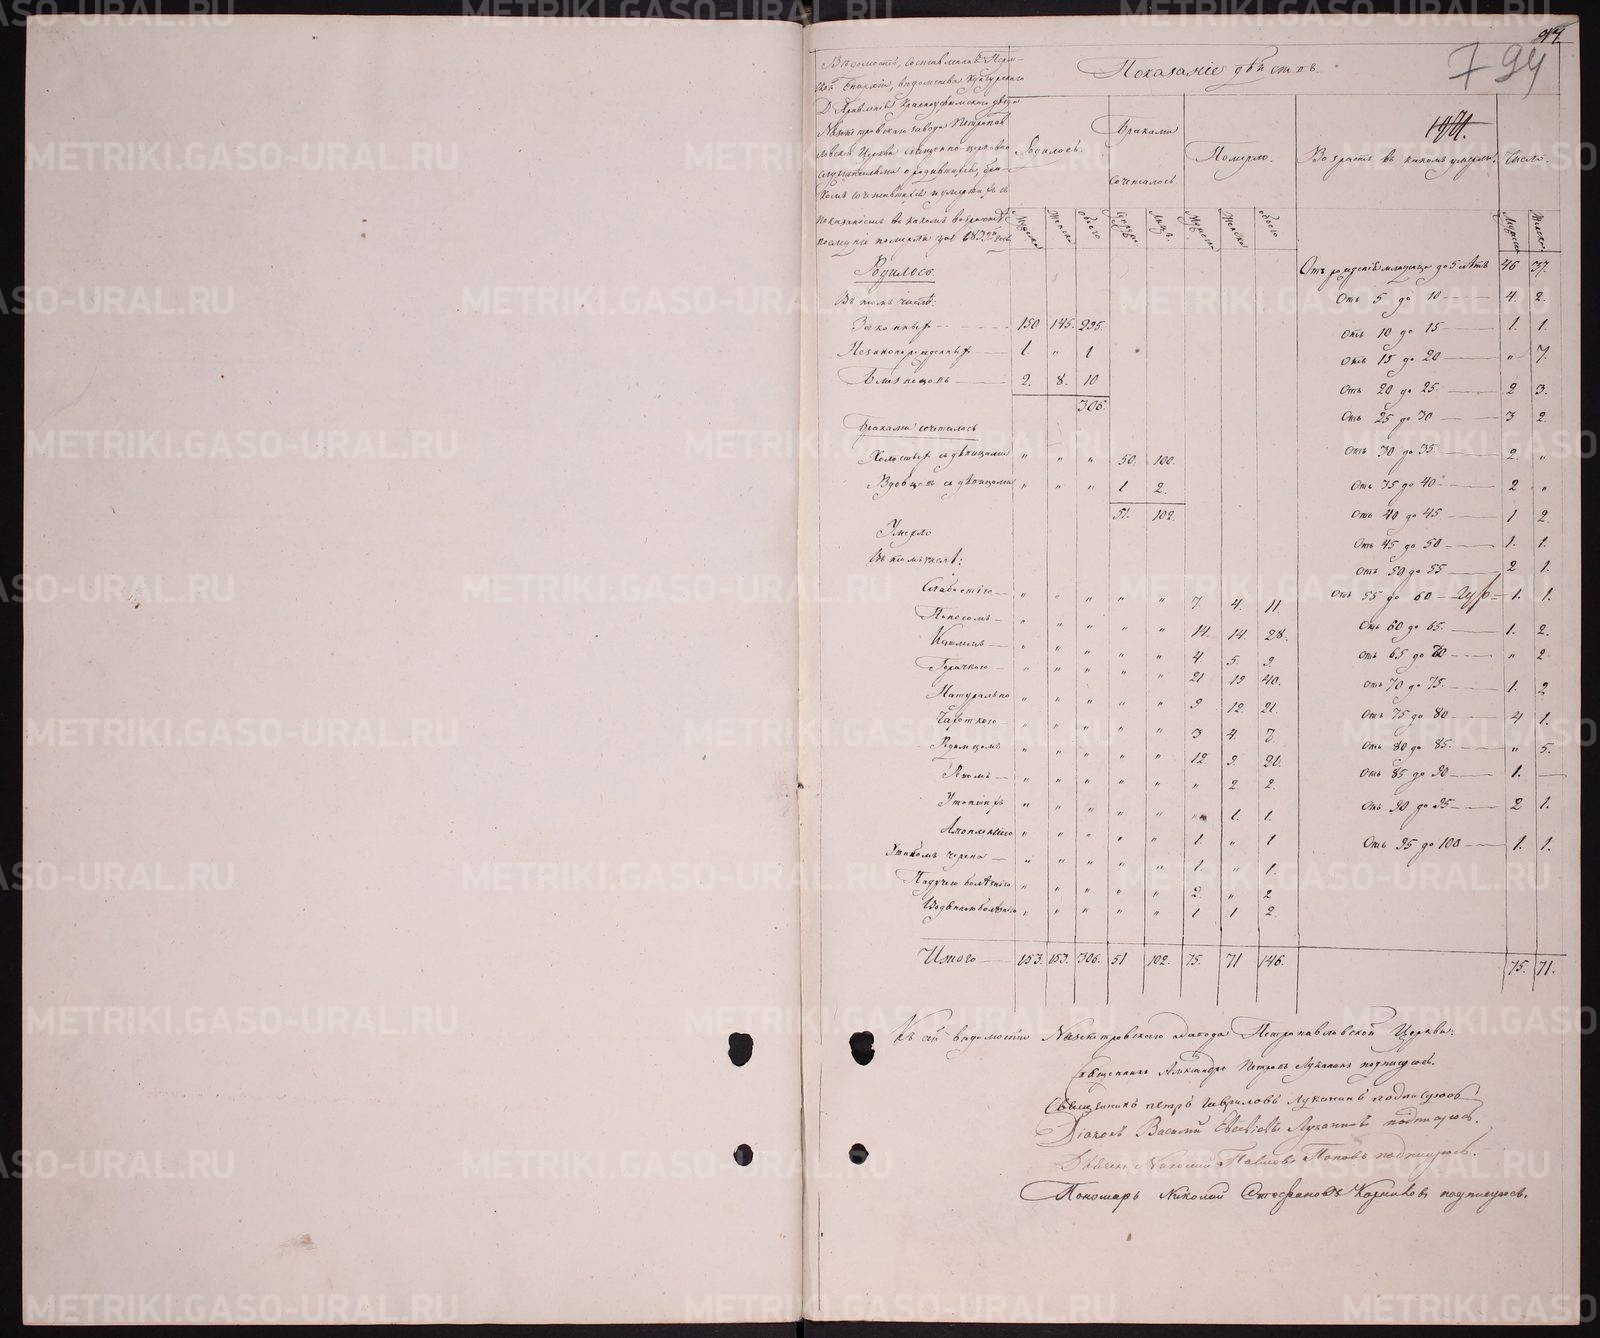 94
794
1471.
Вѣдомость, составленная Перм-
ской Епархіи, вѣдомства Кунгурскаго
Д. Правленія Красноуфимскаго уѣзда
Нязепетровскаго завода Петропав
ловской Церкви священно-церковно
служителями о родившихся, бра-
комъ сочетавшихся и умершихъ съ
показаніемъ въ какомъ возрастѣ
Показаніе дѣйствъ.
Родилось.
Браками
сочеталось
Померло.
Возрастъ въ какомъ умерли.
Число.
Мужеска Женска обоего Мужеска Женска обоего Мужеска Женска
Родилось.
Въ томъ числѣ:
Законныхъ 150 145. 295.
Незаконорожденныхъ 1 " 1
Близнецовъ 2. 8. 10
306.
Браками сочеталось
Холостыхъ съ дѣвицами " " " 50. 100.
Вдовцевъ съ дѣвицами " " " 1 2.
51. 102.
Умерло
Въ томъ числѣ:
Слабостію " " " " " 7. 4. 11.
Поносомъ " " " " " 14. 14. 28.
Кашлемъ " " " " " 4. 5. 9.
Горячкою " " " " " 21 19 40.
Натурально " " " " " 9 12. 21.
Чахоткою " " " " " 3 4. 7.
Родимцомъ " " " " " 12. 9. 21.
" " " " " " 2. 2.
" " " " " " 1. 1.
" " " " " 1 " 1
" " " " " 1. " 1.
Падучею болѣзнію " " " " " 2. " 2
" " " " " 1 1 2.
Итого 153. 153. 306. 51 102. 75. 71 146. 75. 71.
Отъ рожденія младенца до 5 лѣтъ 46 37.
Отъ 5 до 10 4. 2.
Отъ 10 до 15 1. 1.
Отъ 15 до 20 " 7.
Отъ 20 до 25. 2 3.
Отъ 25 до 30 3 2.
Отъ 30 до 35. 2. "
Отъ 35 до 40 2 "
Отъ 40 до 45 1 2.
Отъ 45 до 50 1. 1.
Отъ 50 до 55 2 1.
Отъ 55 до 60 1. 1.
Отъ 60 до 65. 1. 2.
Отъ 65 до 70 " 2
Отъ 70 до 75. 1. 2
Отъ 75 до 80 4 1.
Отъ 80 до 85. " 5.
Отъ 85 до 90 1. —
Отъ 90 до 95 2 1.
Отъ 95 до 100 1. 1.
Къ сей вѣдомости Нязепетровскаго завода Петропавловской Церкви:
Священникъ Александръ Петровъ Луканинъ подписуюсь.
Священникъ Петръ Гавриловъ Луканинъ подписуюсь
Діаконъ Василій Евсевіевъ Луканинъ подписуюсь.
Дьячекъ Николай Павловъ Поповъ подписуюсь.
Пономарь Николай Стефановъ подписуюсь.
METRIKI.GASO-URAL.RU